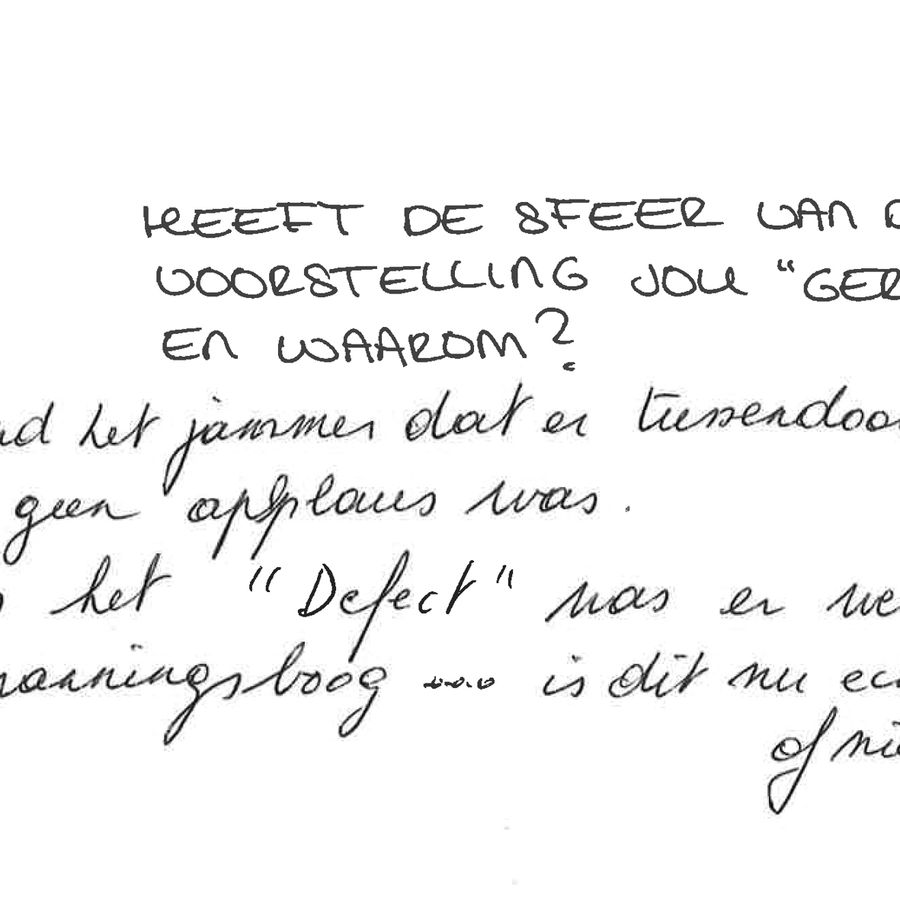 HEEFT DE SFEER VAN D
VOORSTELLING JOU "GER
EN WAAROM?
nd het jammer dat er tussendoor
geen applaus was.
het "Defect" was er we
panningsboog .... is dit nu ec
of ni